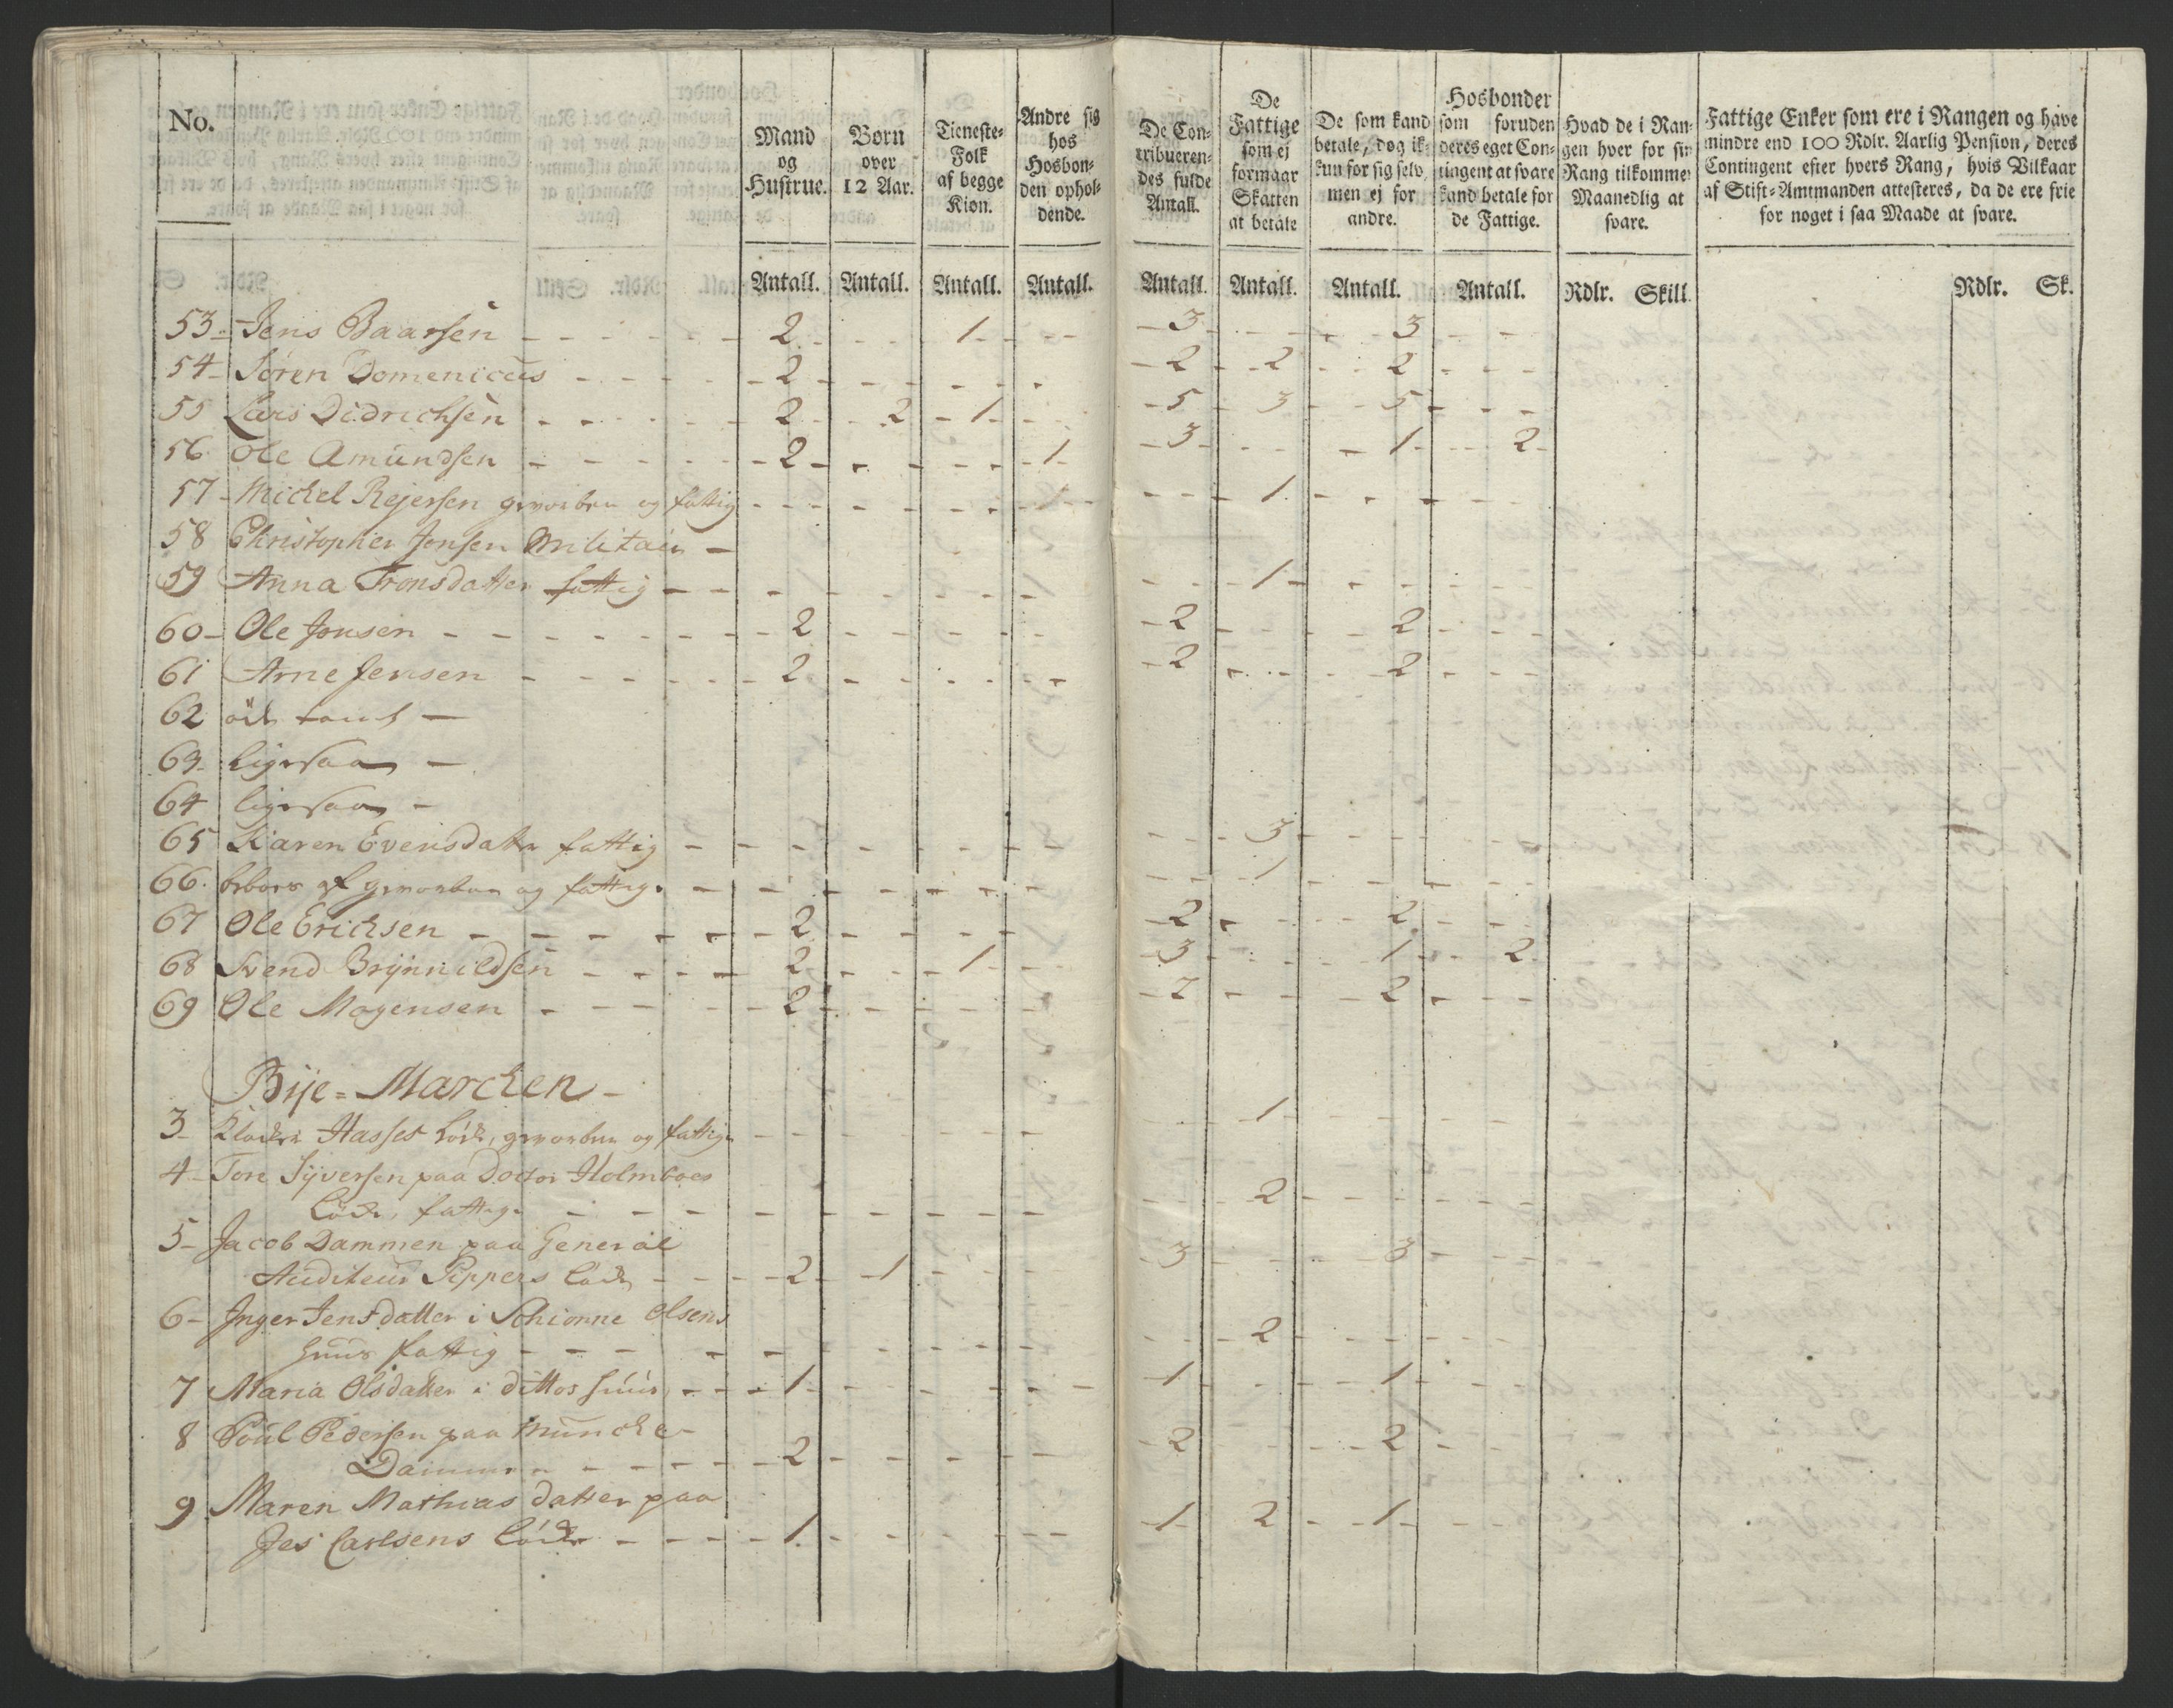 No.
Mand og Hustrue.
Børn over 12 Aar.
Tieneste-Folk af begge Kiøn.
Andre sig hos Hosbonden opholdende.
De Contribuerendes fulde Antall.
De Fattige som ej formaar Skatten at betale
De som kand betale, dog ikkun for sig selv, men ej for andre.
Hosbonder som foruden deres eget Contingent at svare kand betale for de Fattige.
Hvad de i Rangen hver for sin Rang tilkommer Maanedlig at svare.
Fattige Enker som ere i Rangen og have mindre end 100 Rdlr. Aarlig Pension, deres Contingent efter hvers Rang, hvis Vilkaar af Stift-Amtmanden attesteres, da de ere frie for noget i saa Maade at svare.
Antall. Antall. Antall. Antall. Antall. Antall. Antall. Antall. Rdlr. Skill. Rdlr. Sk.
53 - Jens Baarsen 2 1 3 3
54 - Søren Domenicus 2 2 2 2
55 Lars Didrichsen 2 2 1 5 3 5
56 Ole Amundsen 2 1 3 1 2
57 - Mickel Rejersen gevorben og fattig 1
58 Christopher Jensen Militair -
59 Anna Tronsdatter fattig 1
60 - Ole Jonsen 2 2 2
61 Arne Jensen 2 2 2
62 öde tomt -
63 - ligesaa -
64 ligesaa -
65 Karen Evensdatter fattig 3
66. beboes af gevorben og fattige 1
67 Ole Ericksen 2 2 2
68 Svend Brynnildsen 2 1 3 1 2
69 Ole Mogensen 2 2 2
Bÿe-Marcken -
3 - Hasses Löcke, gevorben og fattige 1
4 - Tore Syversen paa Doctor Holmboes
Löcke, fattige 2
5 - Jacob Dammen paa General
Auditeur Pippers Löcke 2 1 3 3
6 - Inger Jensdatter i Olsens
Huus fattig 2
7 Maria Olsdatter i dittos Huus 1 1 1
8 Poul Pedersen paa Muncke-
Dammen 2 2 2
9 Maren Mathias datter paa
Jes Carlsens Löcke 1 1 2 1